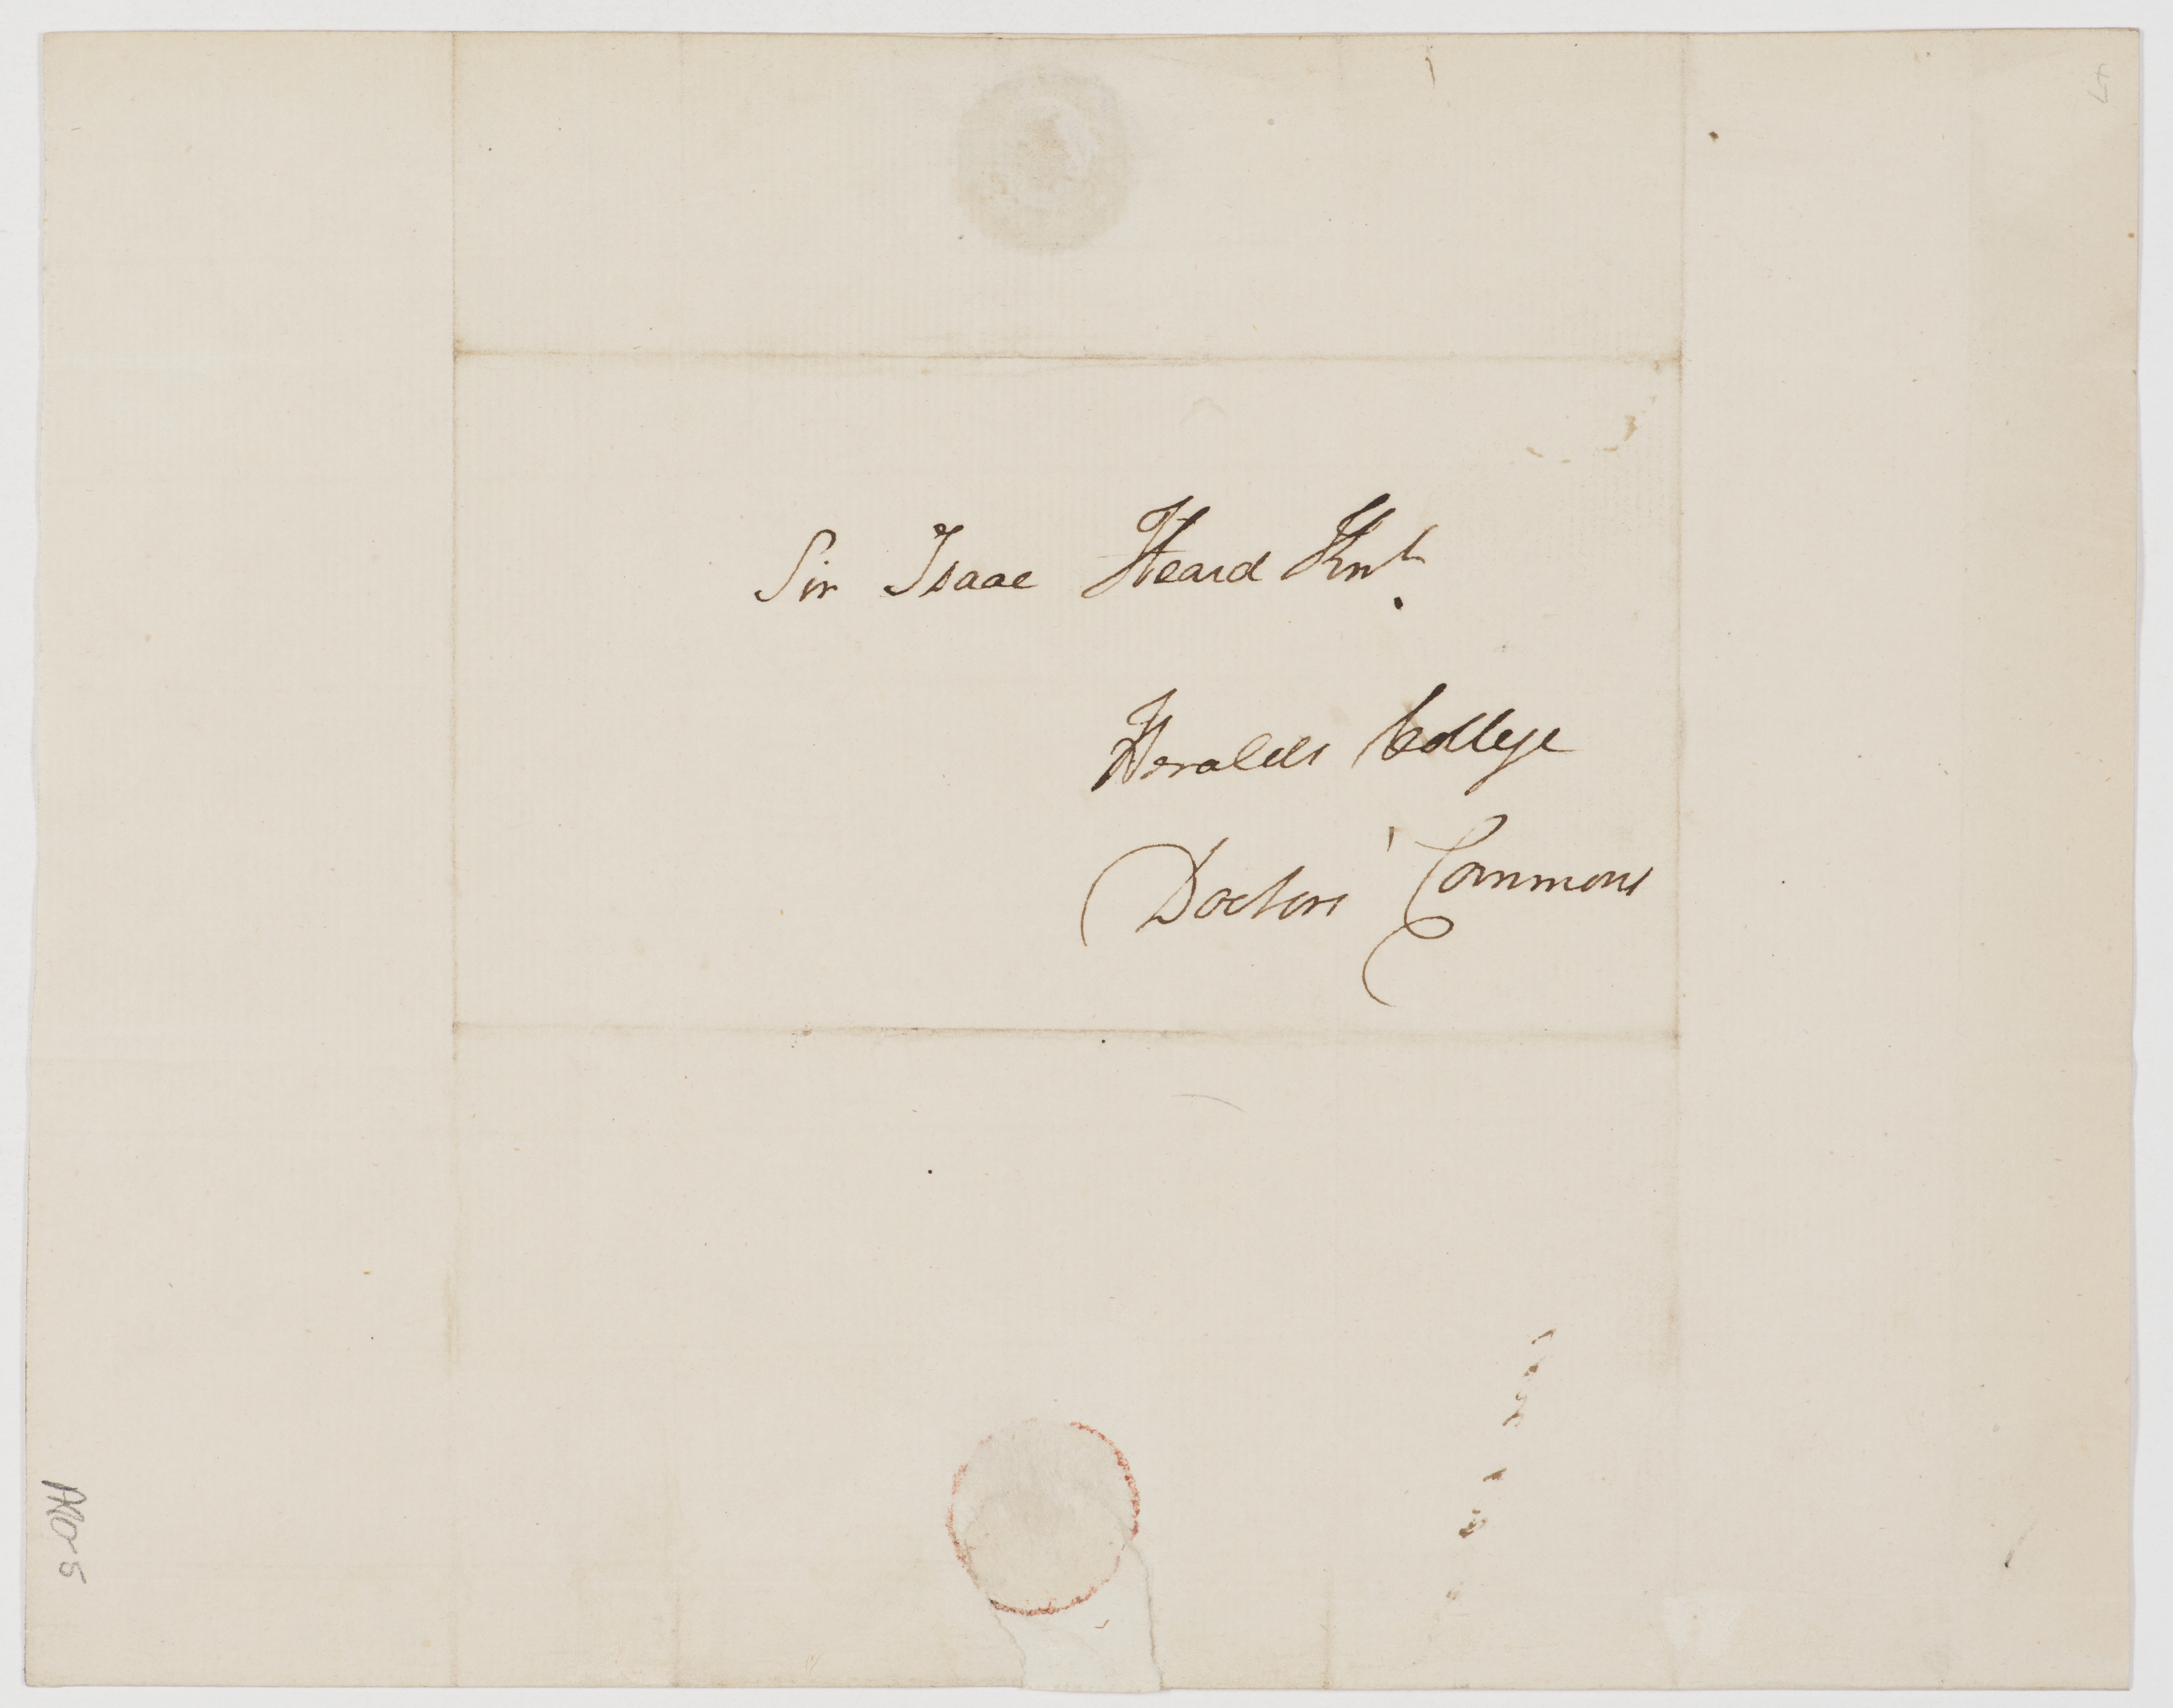 Sir Isaac Heard Knt.
Heralds College
Doctors' Commons
No 5